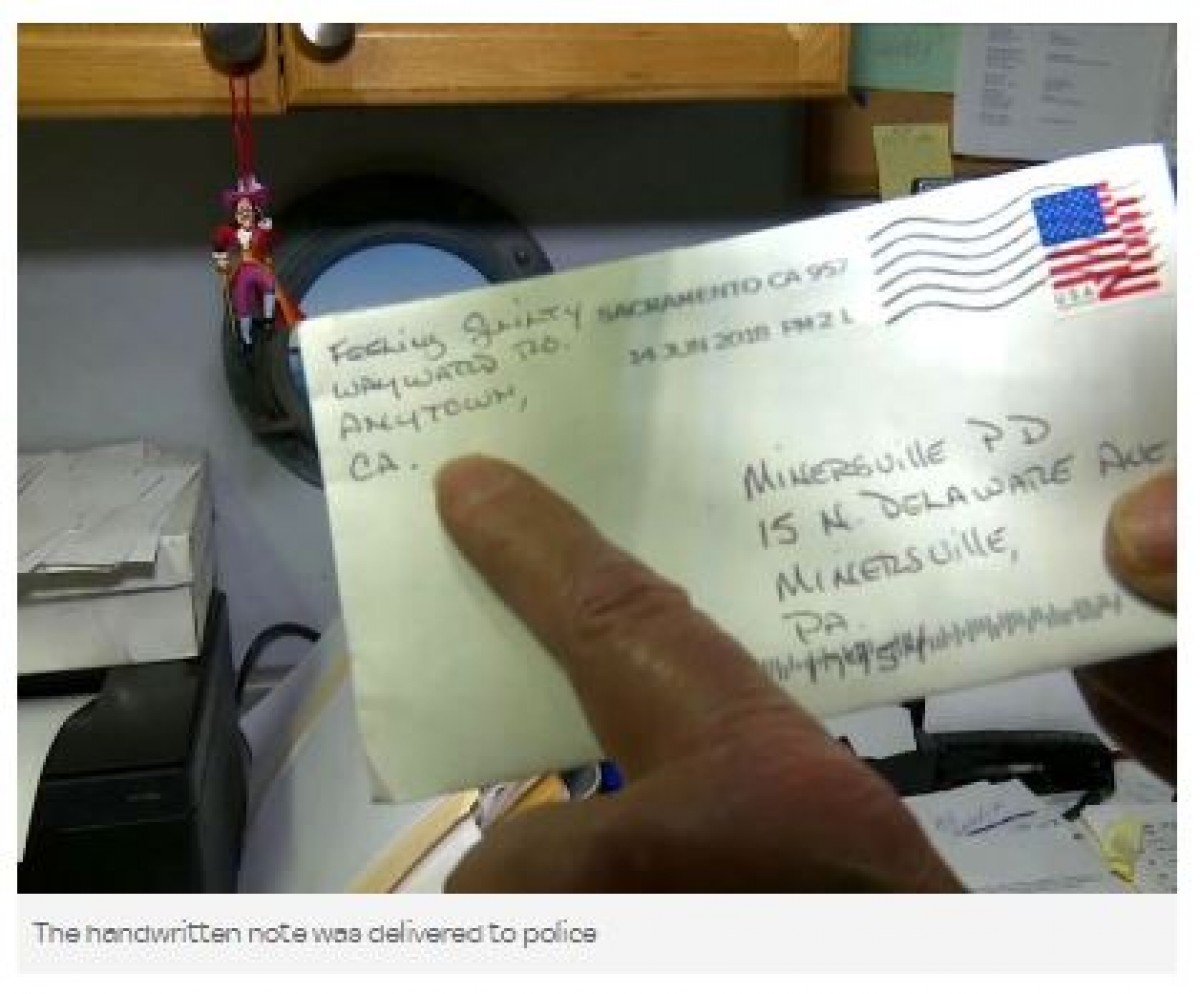 FEELING GUILTY
WAYWARD RD.
ANYTOWN,
CA.
SACRAMENTO CA 957
14 JUN 2018 PM 2 L
USA
MINERSVILLE PD
15 N. DELAWARE AVE
MINERSVILLE,
PA.
The handwritten note was delivered to police